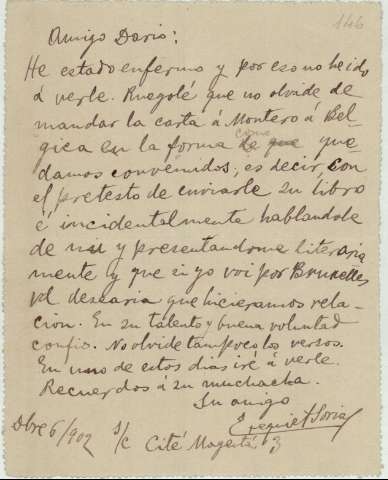 146
Amigo Dario:
He estado enfermo y por eso no he ido
á verle. Ruegolé que no olvide de
mandar la carta á Montero á Bel
gica en la forma de que como que
damos convenidos, es decir, con
el pretesto de enviarle su libro
é incidentalmente hablandole
de mi y presentandome literaria
mente y que si yo voi por Bruxelles
vd desearia que hicieramos rela-
cion. En su talento y buena voluntad
confio. No olvide tampoco los versos.
En uno de estos dias iré á verle.
Recuerdos á su muchacha.
Su amigo
Ezequiel Soria
Dbre 6/902 S/c Cité Magenta 3